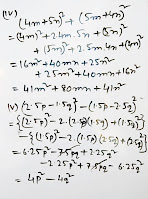 (iii)
(4m+5n)² + (5m+4n)²
= (4m)² + 2.4m.5n + (5n)²
+ (5m)² + 2.5m.4n + (4n)²
= 16m² + 40mn + 25n²
+ 25m² + 40mn + 16n²
= 41m² + 80mn + 41n²
(iv) (2.5p - 1.5q)² - (1.5p - 2.5q)²
= {(2.5p)² - 2.(2.5p)(1.5q) + (1.5q)²}
- {(1.5p)² - 2.(1.5p)(2.5q) + (2.5q)²}
= 6.25p² - 7.5pq + 2.25q²
- 2.25p² + 7.5pq - 6.25q²
= 4p² - 4q²